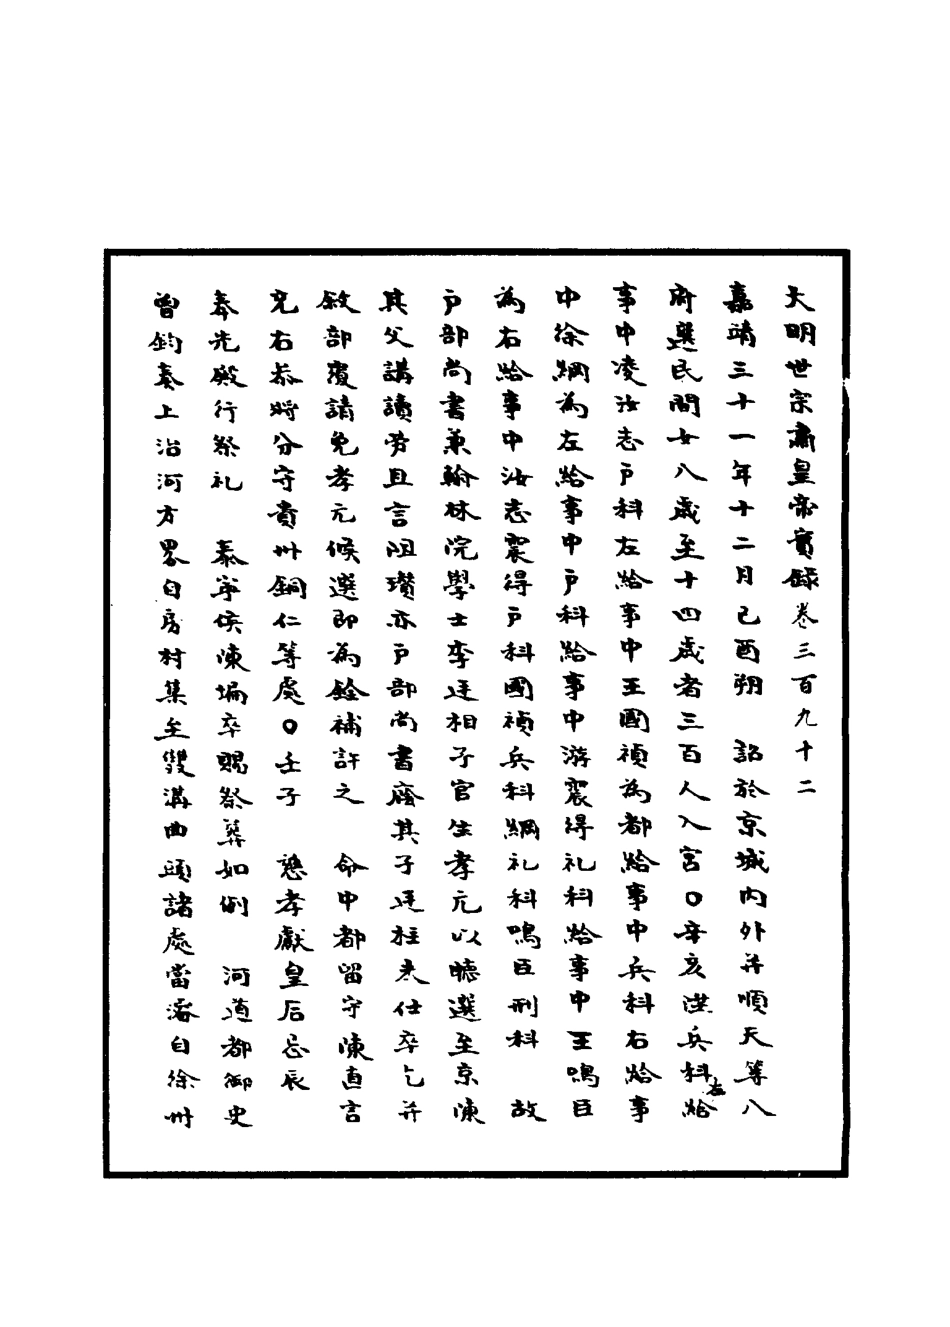 大明世宗肅皇帝實錄卷三百九十二
嘉靖三十一年十二月己酉朔　詔於京城內外并順天等八
府選民間女八歲至十四歲者三百人入宮○辛亥陞兵科左給
事中凌汝志戶科左給事中王國禎為都給事中兵科右給事
中徐綱為左給事中戶科給事中游震得礼科給事中王鳴臣
為右給事中汝志震得戶科國禎兵科綱礼科鳴臣刑科　故
戶部尚書兼翰林院學士李廷相子官生孝元以聽選至京陳
其父講讀勞且言阻瓚亦戶部尚書廕其子廷柱未仕卒乞并
敘部覆請免孝元候選即為銓補許之　命中都留守陳直言
充右叅將分守貴州銅仁等處○壬子　慈孝獻皇后忌辰
奉先殿行祭礼　泰寧侯陳壖卒賜祭葬如例　河道都御史
曾鈞奏上治河方畧自房村集至雙溝曲頭諸處當濬自徐州